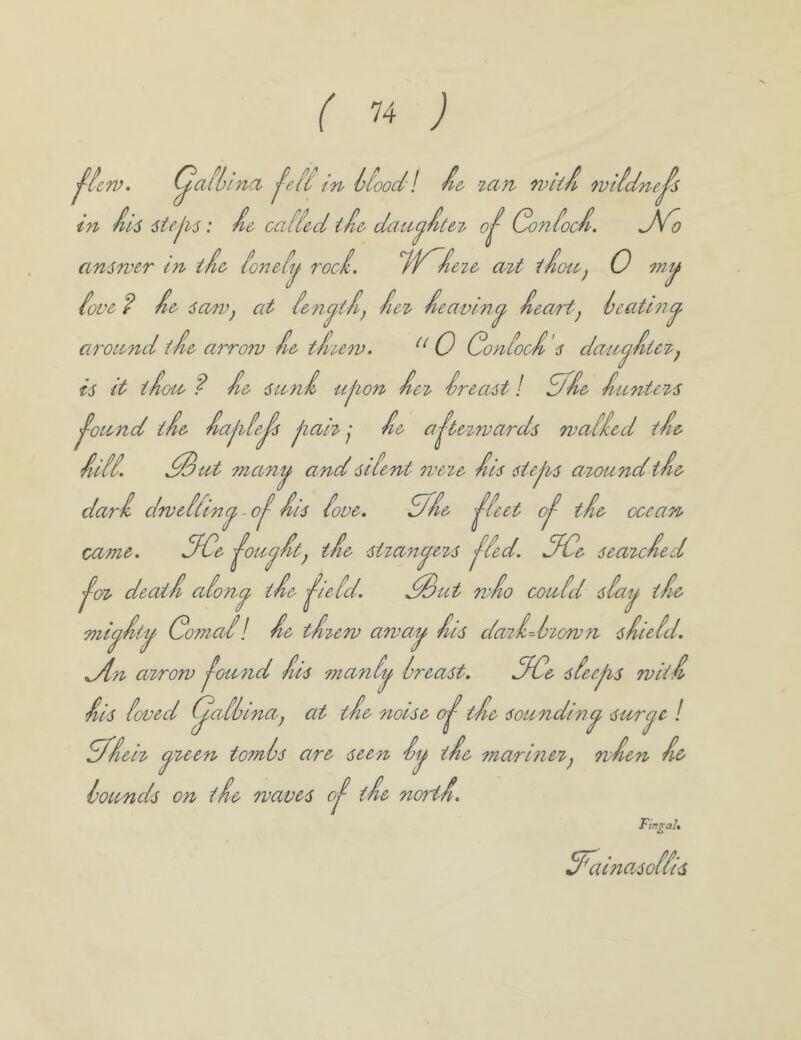 ( 74 )
flew. Galbina fell in blood! he ran with wildneſs
in his steps: he called the daughter of Conloch. No
answer in the lonely rock. Where art thou, O my
love? he saw, at length, her heaving heart, beating
around the arrow he threw. "O Conloch's daughter,
is it thou? he sunk upon her breast! The hunters
found the hapleſs pair; he afterwards walked the
hill. But many and silent were his steps around the
dark dwelling-of his love. The fleet of the ocean
came. He fought, the strangers fled. He searched
for death along the field. But who could slay the
mighty Comal! he threw away his dark-brown shield.
An arrow found his manly breast. He sleeps with
his loved Galbina, at the noise of the sounding surge!
Their green tombs are seen by the mariner, when he
bounds on the waves of the north.
Fingal.
Fainasollis